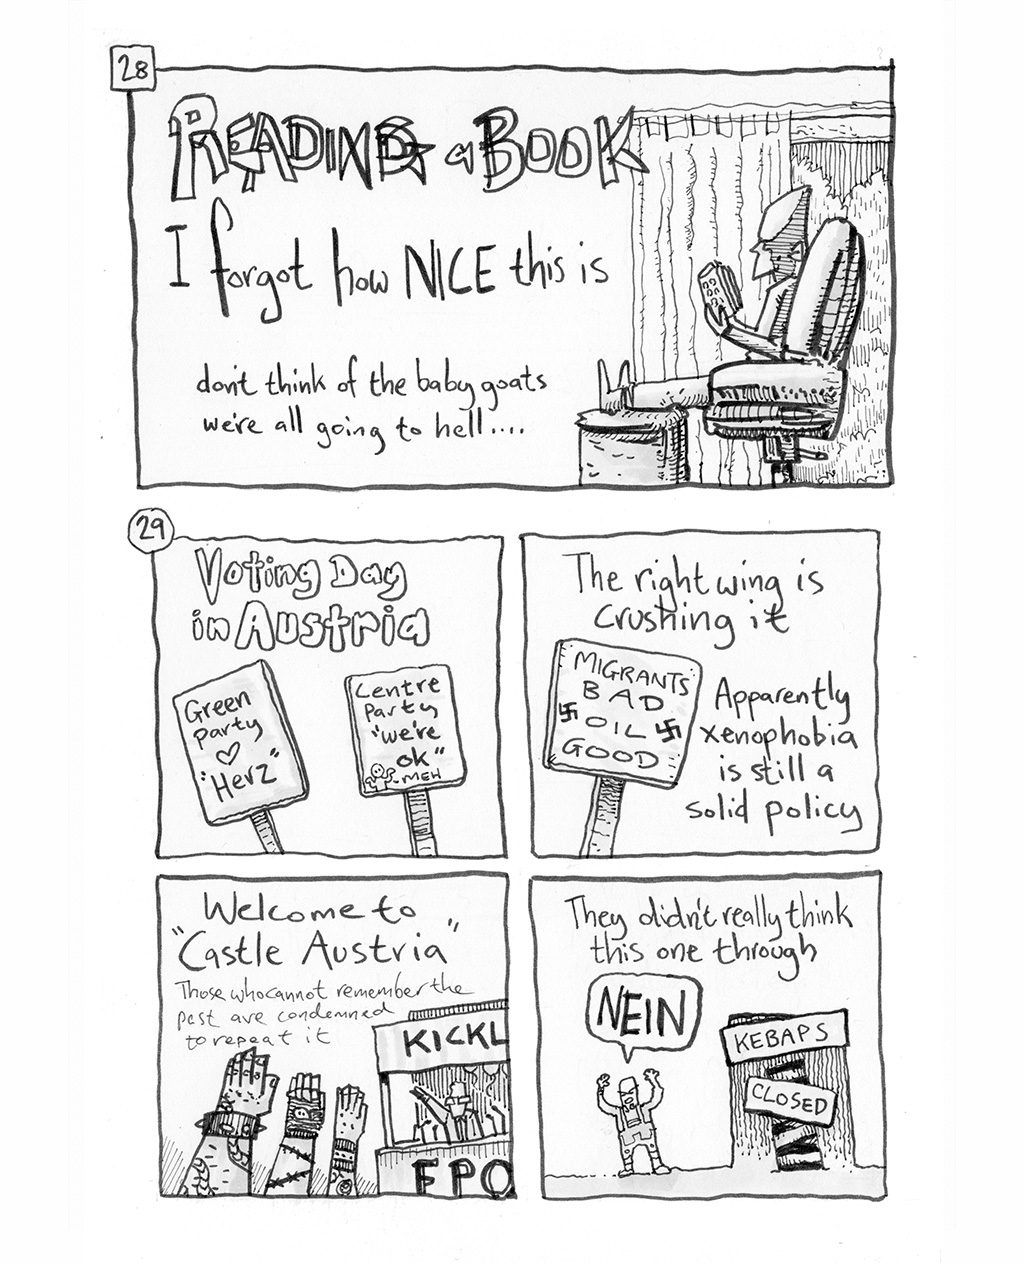 28
READING a BOOK
I forgot how NICE this is
don't think of the baby goats
we're all going to hell....
29
Voting Day
in Austria
Green
Party
"Herz"
Centre
Party
"we're
ok"
MEH
The right wing is
crushing it
MIGRANTS
BAD
OIL
GOOD
Apparently
xenophobia
is still a
solid policy
Welcome to
"Castle Austria"
Those who cannot remember the
past are condemned
to repeat it
KICKL
FPO
They didn't really think
this one through
NEIN
KEBAPS
CLOSED